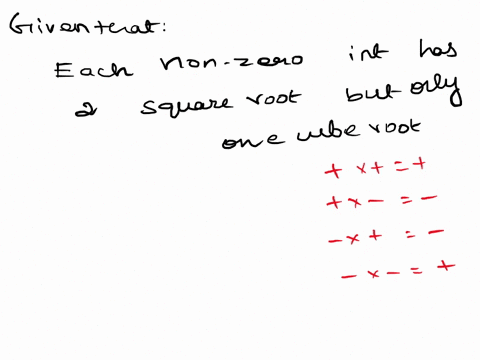 Given that:
Each non-zero int has
2 square root but only
one cube root
+ x + = +
+ x - = -
- x + = -
- x - = +